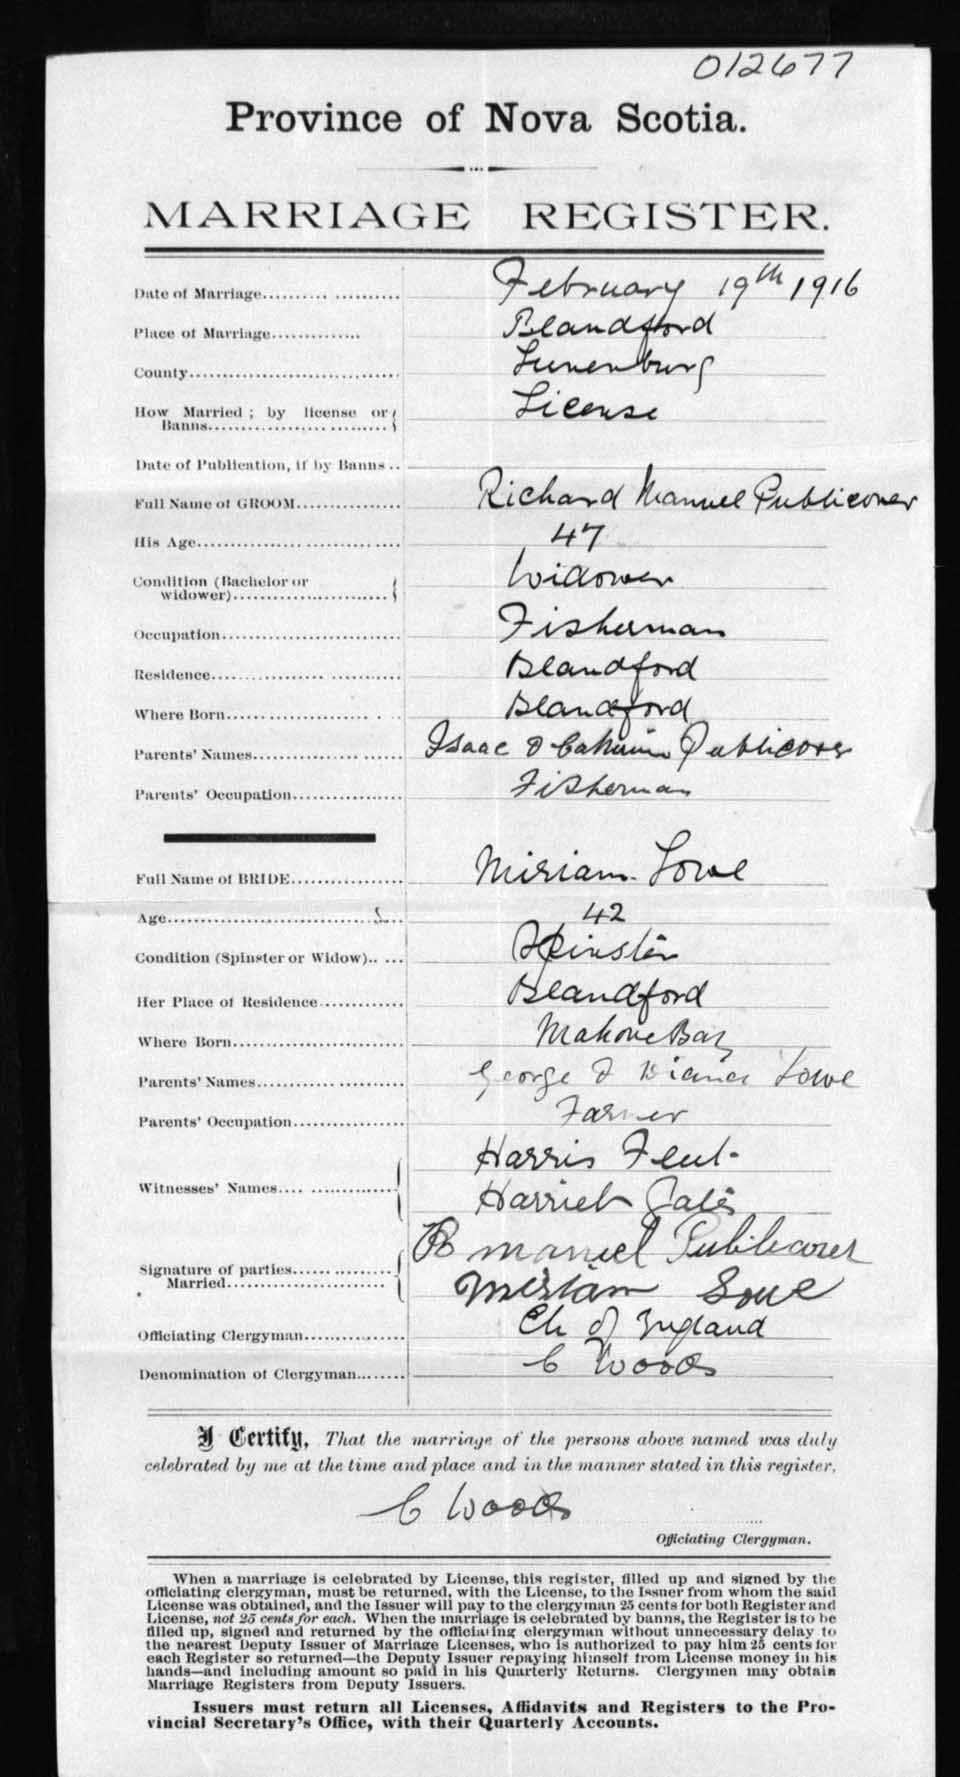 012677
Province of Nova Scotia.
MARRIAGE REGISTER.
Date of Marriage........................ February 19th 1916
Place of Marriage.............. Blandford
County................................. Lunenburg
How Married ; by license or License
Banns..............................
Date of Publication, if by Banns ..
Full Name of GROOM................ Richard Manuel Publicover
His Age................................ 47
Condition (Bachelor or Widower
widower)........................
Occupation............................ Fisherman
Residence............................ Blandford
Where Born........................ Blandford
Parents' Names........................ Isaac & Publicover
Parents' Occupation................. Fisherman
Full Name of BRIDE................. Miriam Lowe
Age.................................... 42
Condition (Spinster or Widow)..... Spinster
Her Place of Residence............. Blandford
Where Born........................... Mahone Bay
Parents' Names....................... George & Lowe
Parents' Occupation................. Farmer
Harris
Witnesses' Names.... ............... Harriet
R Manuel Publicover
Signature of parties..................
Married........................ Miriam Lowe
Officiating Clergyman............... Ch of England
Denomination of Clergyman........ C Woods
I Certify, That the marriage of the persons above named was duly
celebrated by me at the time and place and in the manner stated in this register,
C Woods
Officiating Clergyman.
When a marriage is celebrated by License, this register, filled up and signed by the
officiating clergyman, must be returned, with the License, to the Issuer from whom the said
License was obtained, and the Issuer will pay to the clergyman 25 cents for both Register and
License, not 25 cents for each. When the marriage is celebrated by banns, the Register is to be
filled up, signed and returned by the officiating clergyman without unnecessary delay to
the nearest Deputy Issuer of Marriage Licenses, who is authorized to pay him 25 cents for
each Register so returned—the Deputy Issuer repaying himself from License money in his
hands—and including amount so paid in his Quarterly Returns. Clergymen may obtain
Marriage Registers from Deputy Issuers.
Issuers must return all Licenses, Affidavits and Registers to the Pro-
vincial Secretary's Office, with their Quarterly Accounts.